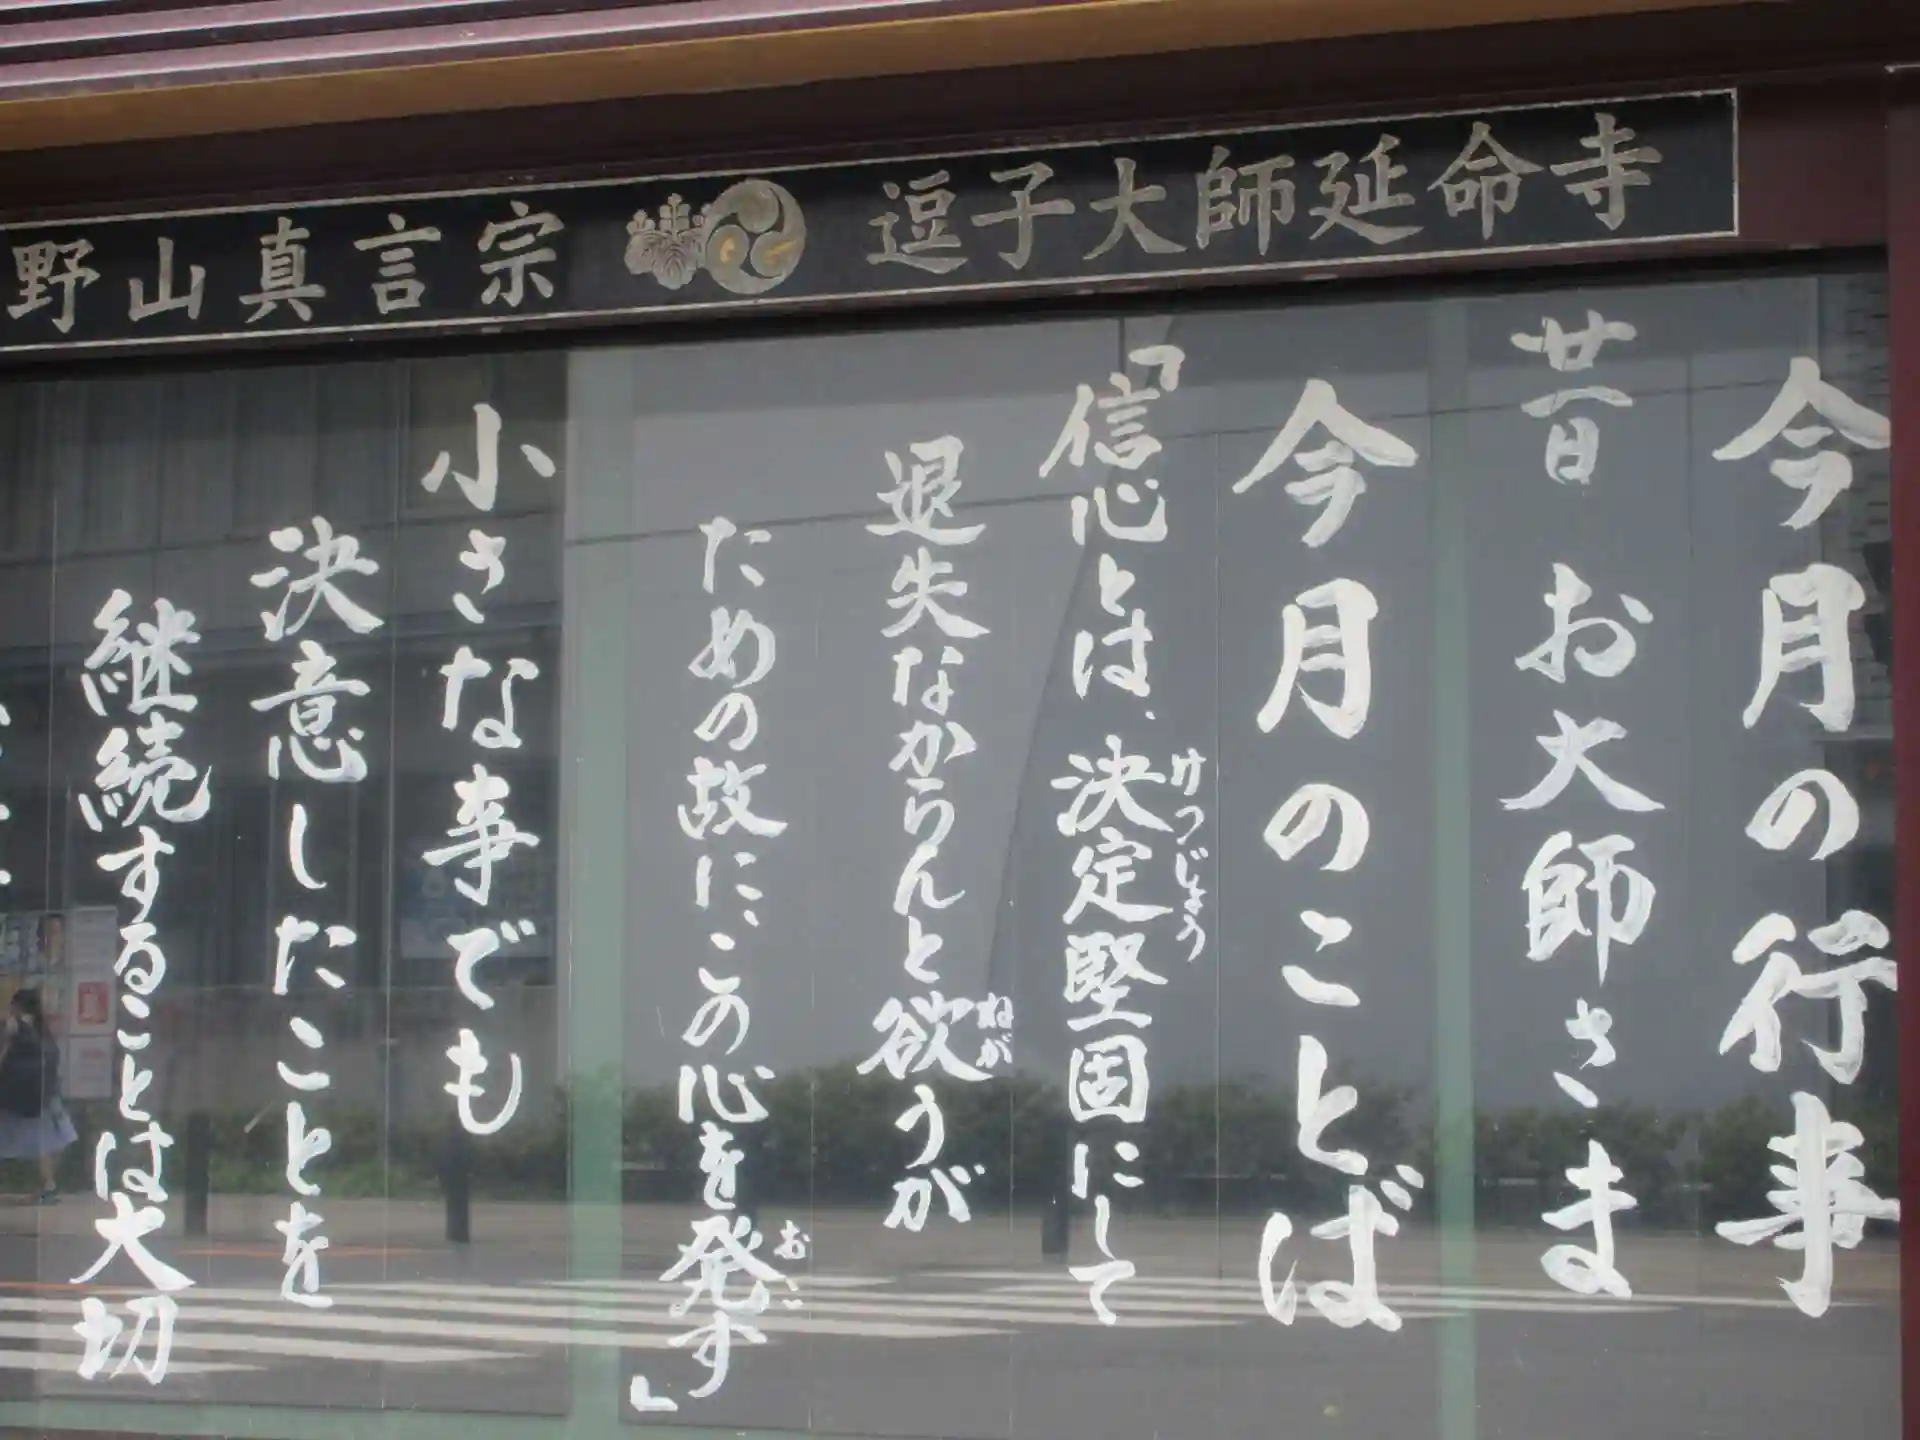 逗子大師延命寺
野山真言宗
今月の行事
廿一日 お大師さま
今月のことば
「信心とは、決定堅固にして
けつじょう
退失なからんと欲うが
ねが
ための故に、この心を発す」
おこ
小さな事でも
決意したことを
継続することは大切